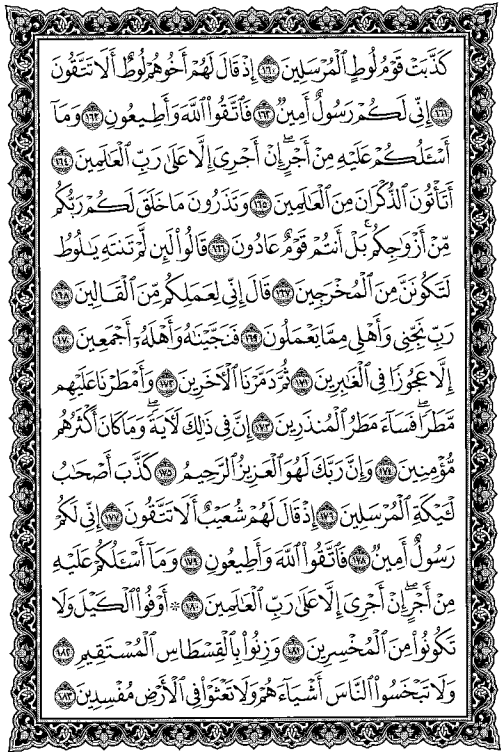 كَذَّبَتْ قَوْمُ لُوطٍ الْمُرْسَلِينَ ١٦٠ إِذْ قَالَ لَهُمْ أَخُوهُمْ لُوطٌ أَلَا تَتَّقُونَ
١٦١ إِنِّي لَكُمْ رَسُولٌ أَمِينٌ ١٦٢ فَاتَّقُوا اللَّهَ وَأَطِيعُونِ ١٦٣ وَمَا
أَسْـَٔلُكُمْ عَلَيْهِ مِنْ أَجْرٍ إِنْ أَجْرِيَ إِلَّا عَلَىٰ رَبِّ الْعَالَمِينَ ١٦٤
أَتَأْتُونَ الذُّكْرَانَ مِنَ الْعَالَمِينَ ١٦٥ وَتَذَرُونَ مَا خَلَقَ لَكُمْ رَبُّكُم
مِّنْ أَزْوَاجِكُم بَلْ أَنتُمْ قَوْمٌ عَادُونَ ١٦٦ قَالُوا لَئِن لَّمْ تَنتَهِ يَـٰلُوطُ
لَتَكُونَنَّ مِنَ الْمُخْرَجِينَ ١٦٧ قَالَ إِنِّي لِعَمَلِكُم مِّنَ الْقَالِينَ ١٦٨
رَبِّ نَجِّنِي وَأَهْلِي مِمَّا يَعْمَلُونَ ١٦٩ فَنَجَّيْنَـٰهُ وَأَهْلَهُۥ أَجْمَعِينَ ١٧٠
إِلَّا عَجُوزًا فِي الْغَابِرِينَ ١٧١ ثُمَّ دَمَّرْنَا الْآخَرِينَ ١٧٢ وَأَمْطَرْنَا عَلَيْهِم
مَّطَرًا فَسَاءَ مَطَرُ الْمُنذَرِينَ ١٧٣ إِنَّ فِي ذَٰلِكَ لَآيَةً وَمَا كَانَ أَكْثَرُهُم
مُّؤْمِنِينَ ١٧٤ وَإِنَّ رَبَّكَ لَهُوَ الْعَزِيزُ الرَّحِيمُ ١٧٥ كَذَّبَ أَصْحَابُ
لْـَٔيْكَةِ الْمُرْسَلِينَ ١٧٦ إِذْ قَالَ لَهُمْ شُعَيْبٌ أَلَا تَتَّقُونَ ١٧٧ إِنِّي لَكُمْ
رَسُولٌ أَمِينٌ ١٧٨ فَاتَّقُوا اللَّهَ وَأَطِيعُونِ ١٧٩ وَمَا أَسْـَٔلُكُمْ عَلَيْهِ
مِنْ أَجْرٍ إِنْ أَجْرِيَ إِلَّا عَلَىٰ رَبِّ الْعَالَمِينَ ١٨٠ * أَوْفُوا الْكَيْلَ وَلَا
تَكُونُوا مِنَ الْمُخْسِرِينَ ١٨١ وَزِنُوا بِالْقِسْطَاسِ الْمُسْتَقِيمِ ١٨٢
وَلَا تَبْخَسُوا النَّاسَ أَشْيَاءَهُمْ وَلَا تَعْثَوْا فِي الْأَرْضِ مُفْسِدِينَ ١٨٣